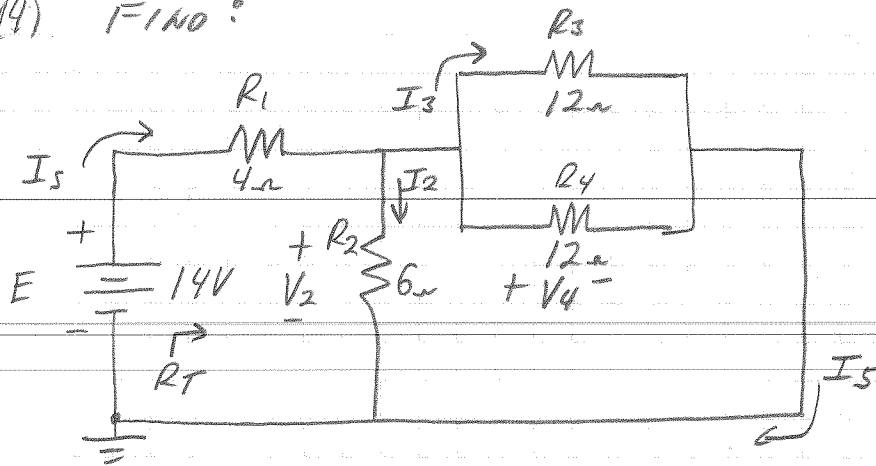 (4) FIND:
R3
I3
12Ω
R1
Is
4Ω
I2
R4
+
R2
+
12Ω
E
14V
V2
6Ω
+ V4 -
-
-
RT
I5